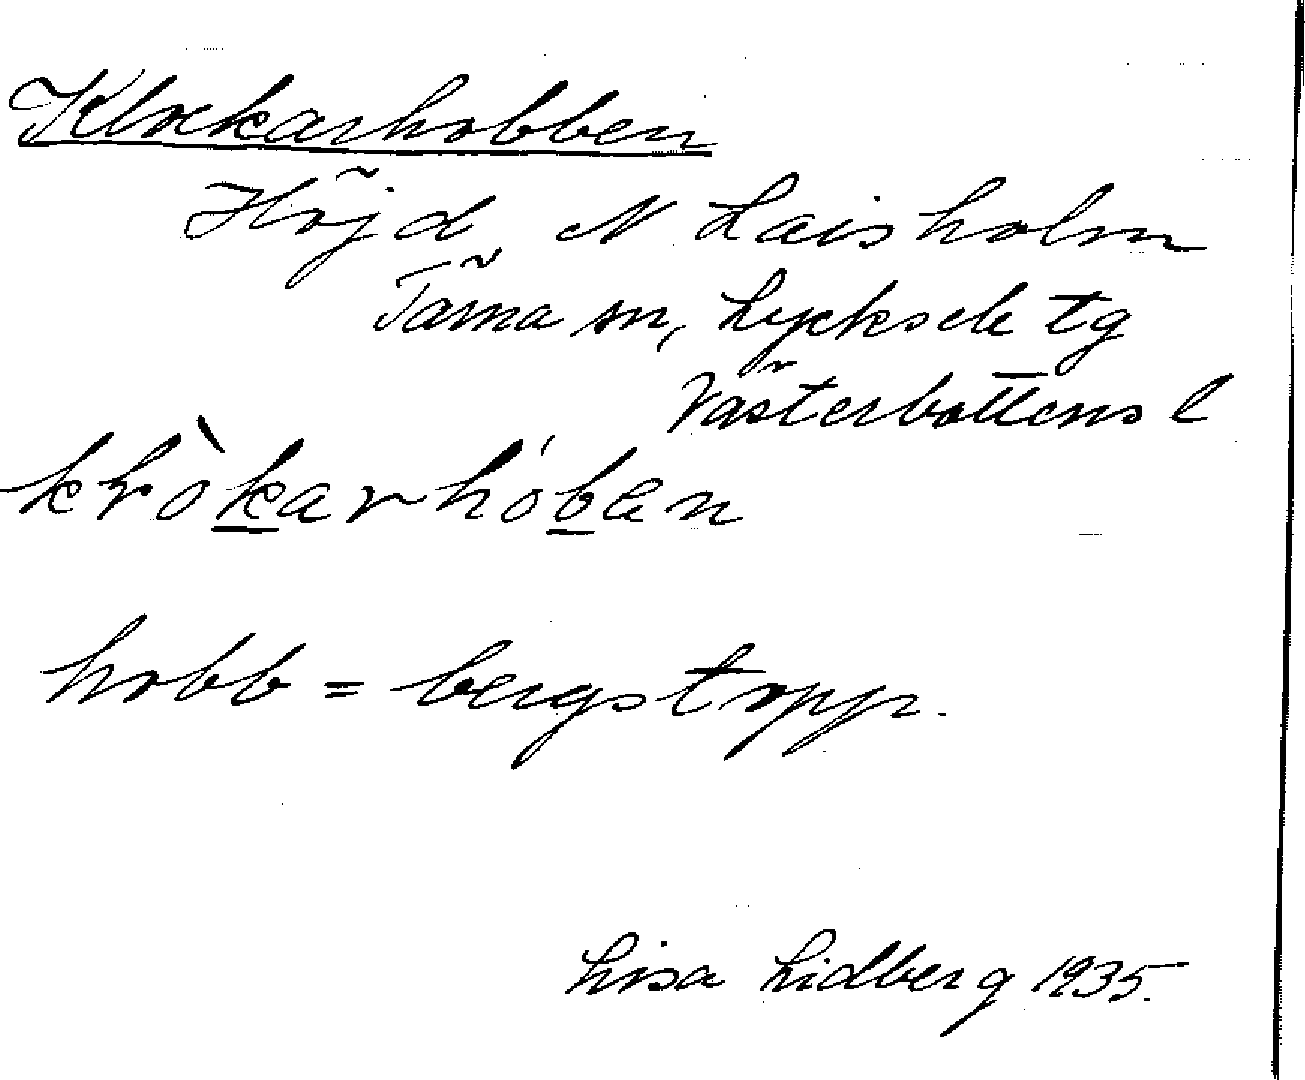 Klockarhobben
Höjd, N Laisholm
Tärna sn, Lycksele tg
Västerbottens l
hobb = bergstopp.
Lisa Lidberg 1935.